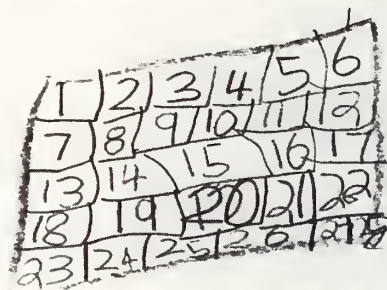 1 2 3 4 5 6
7 8 9 10 11 12
13 14 15 16 17
18 19 20 21 22
23 24 25 26 27